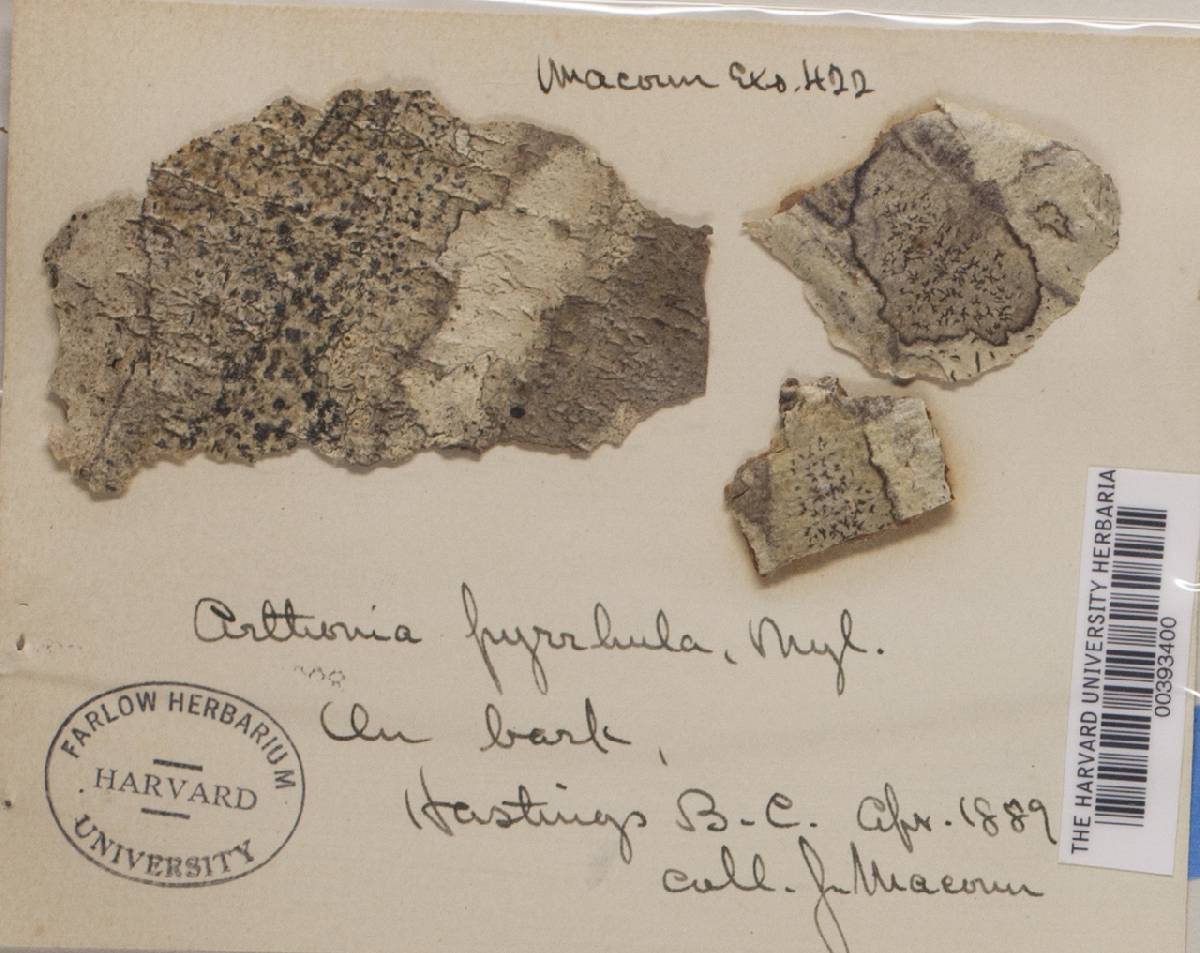 Macoun Exs. 422
Arthonia pyrrhula, Nyl.
On bark,
Hastings B.C. Apr. 1889
coll. J. Macoun
FARLOW HERBARIUM
HARVARD
UNIVERSITY
THE HARVARD UNIVERSITY HERBARIA
00393400